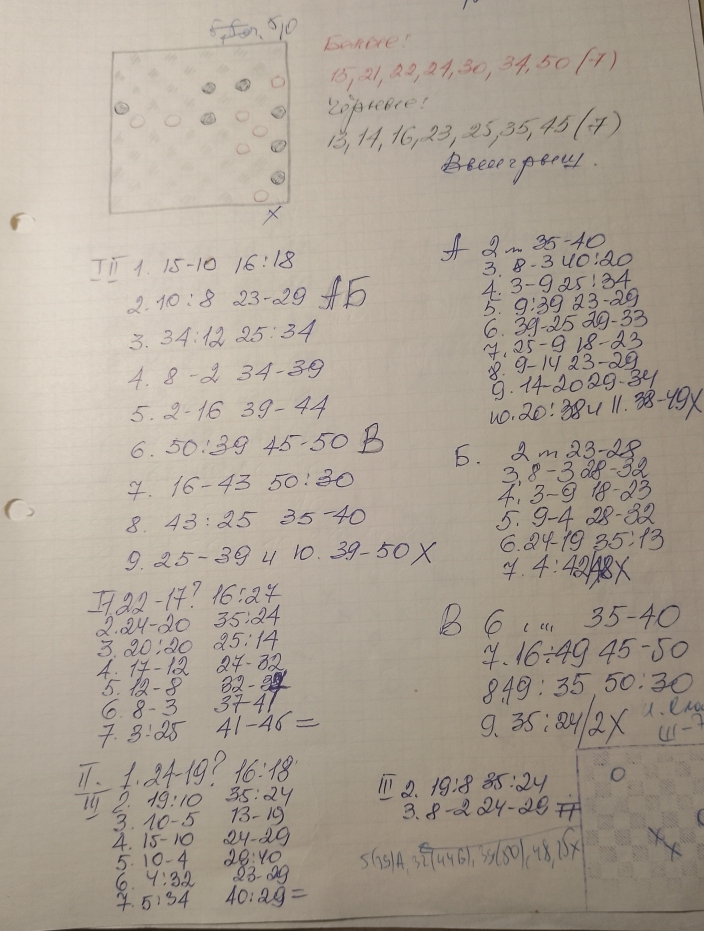 Белые:
15, 21, 22, 24, 30, 34, 50 (-7)
Чёрные:
13, 14, 16, 23, 25, 35, 45 (-7)
Выигрыш.
X
III 1. 15-10 16:18
2. 10:8 23-29 АБ
3. 34:12 25:34
4. 8-2 34-39
5. 2-16 39-44
6. 50:39 45-50 В
7. 16-43 50:30
8. 43:25 35-40
9. 25-39 и 10. 39-50 X
А 2 ... 35-40
3. 8-3 40:20
4. 3-9 25:34
5. 9:39 23-29
6. 39-25 29-33
7. 25-9 18-23
8. 9-14 23-29
9. 14-20 29-34
10. 20:38 и 11. 38-49 X
Б. 2 ... 23-28
3. 8-3 28-32
4. 3-9 18-23
5. 9-4 28-32
6. 24-19 35:13
7. 4:42/48 X
В 6 ... 35-40
7. 16÷49 45-50
8. 49:35 50:30
9. 35:24/2X
22-17? 16:27
2. 24-20 35:24
3. 20:20 25:14
4. 17-12 27-32
5. 12-8 32-37
6. 8-3 37-41
7. 3:25 41-46=
II. 1. 24-19? 16:18
III 2. 19:10 35:24
3. 10-5 13-19
4. 15-10 24-29
5. 10-4 29:40
6. 4:32 23-29
7. 5:34 40:29=
III 2. 19:8 35:24
3. 8-2 24-29
III-7